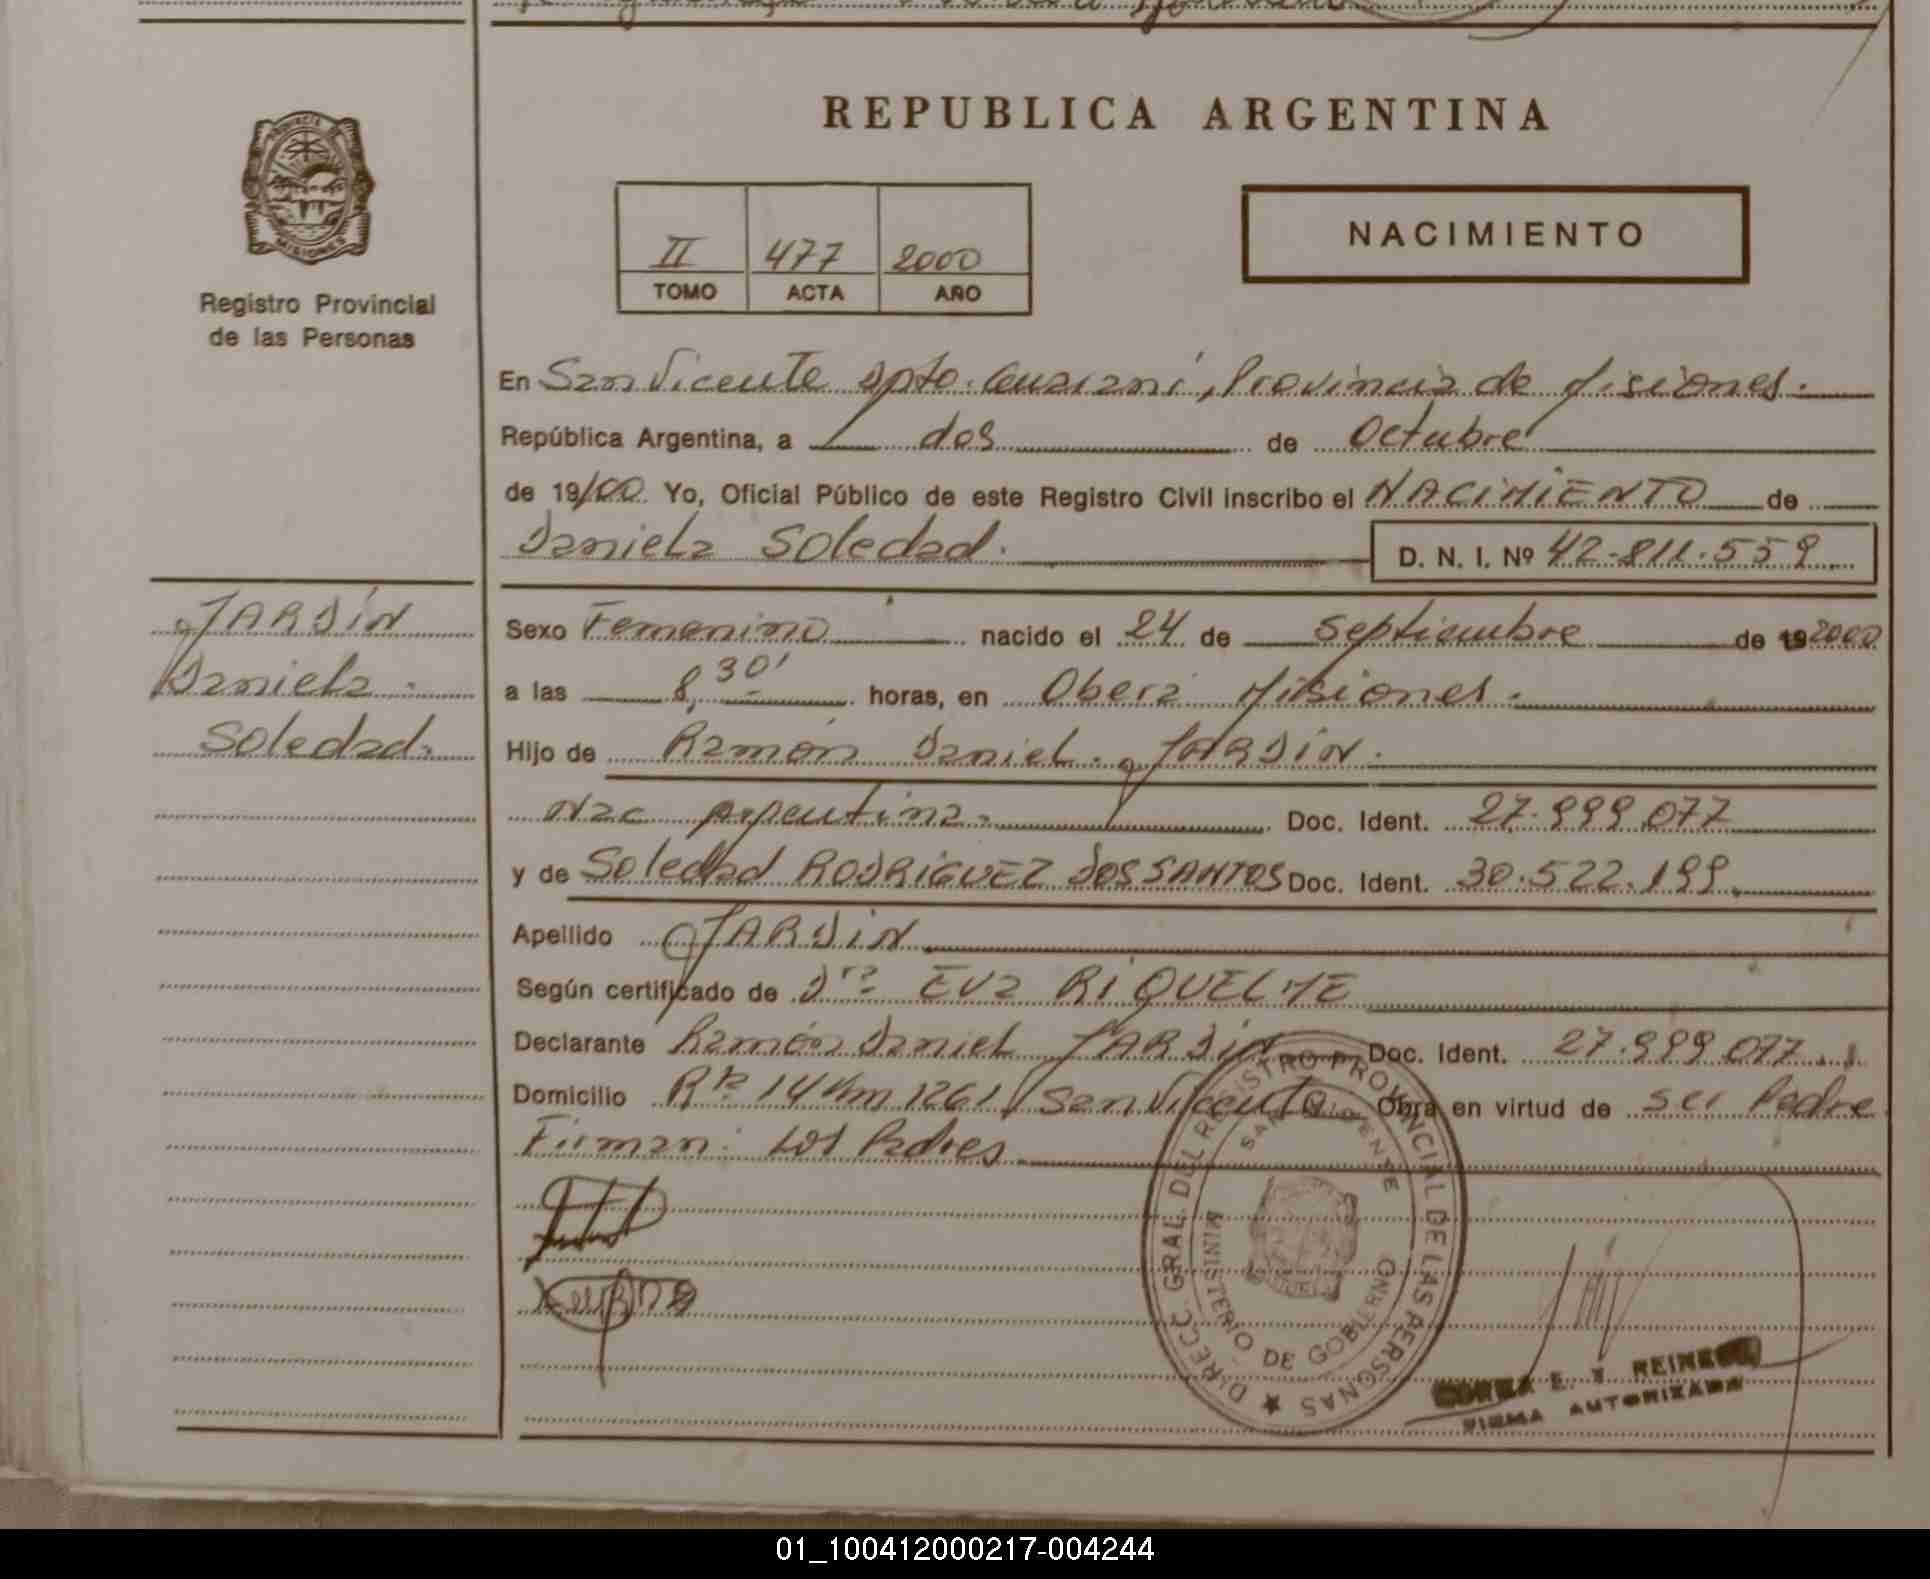 REPUBLICA ARGENTINA
PROVINCIA
MISIONES
Registro Provincial
de las Personas
II 477 2000
TOMO ACTA AÑO
NACIMIENTO
En San Vicente Dpto. Guaraní, Provincia de Misiones.
República Argentina, a dos de Octubre
de 19/00 Yo, Oficial Público de este Registro Civil inscribo el NACIMIENTO de
Daniela Soledad. D. N. I. Nº 42.811.559
JARDIN
Daniela
Soledad.
Sexo Femenino nacido el 24 de Septiembre de 19 2000
a las 8,30' horas, en Oberá Misiones.
Hijo de Ramón Daniel JARDIN.
Nac Argentina. Doc. Ident. 27.999.077
y de Soledad RODRIGUEZ DOS SANTOS Doc. Ident. 30.522.199.
Apellido JARDIN
Según certificado de Dra EVA RIQUELME
Declarante Ramón Daniel JARDIN Doc. Ident. 27.999.077
Domicilio Rta 14 Km 1261 San Vicente Obra en virtud de ser Padre
Firman: Los Padres
DIRECC. GRAL. DEL REGISTRO PROVINCIAL DE LAS PERSONAS
SAN VICENTE
MINISTERIO DE GOBIERNO
E. REINE
FIRMA AUTORIZADA
01_100412000217-004244